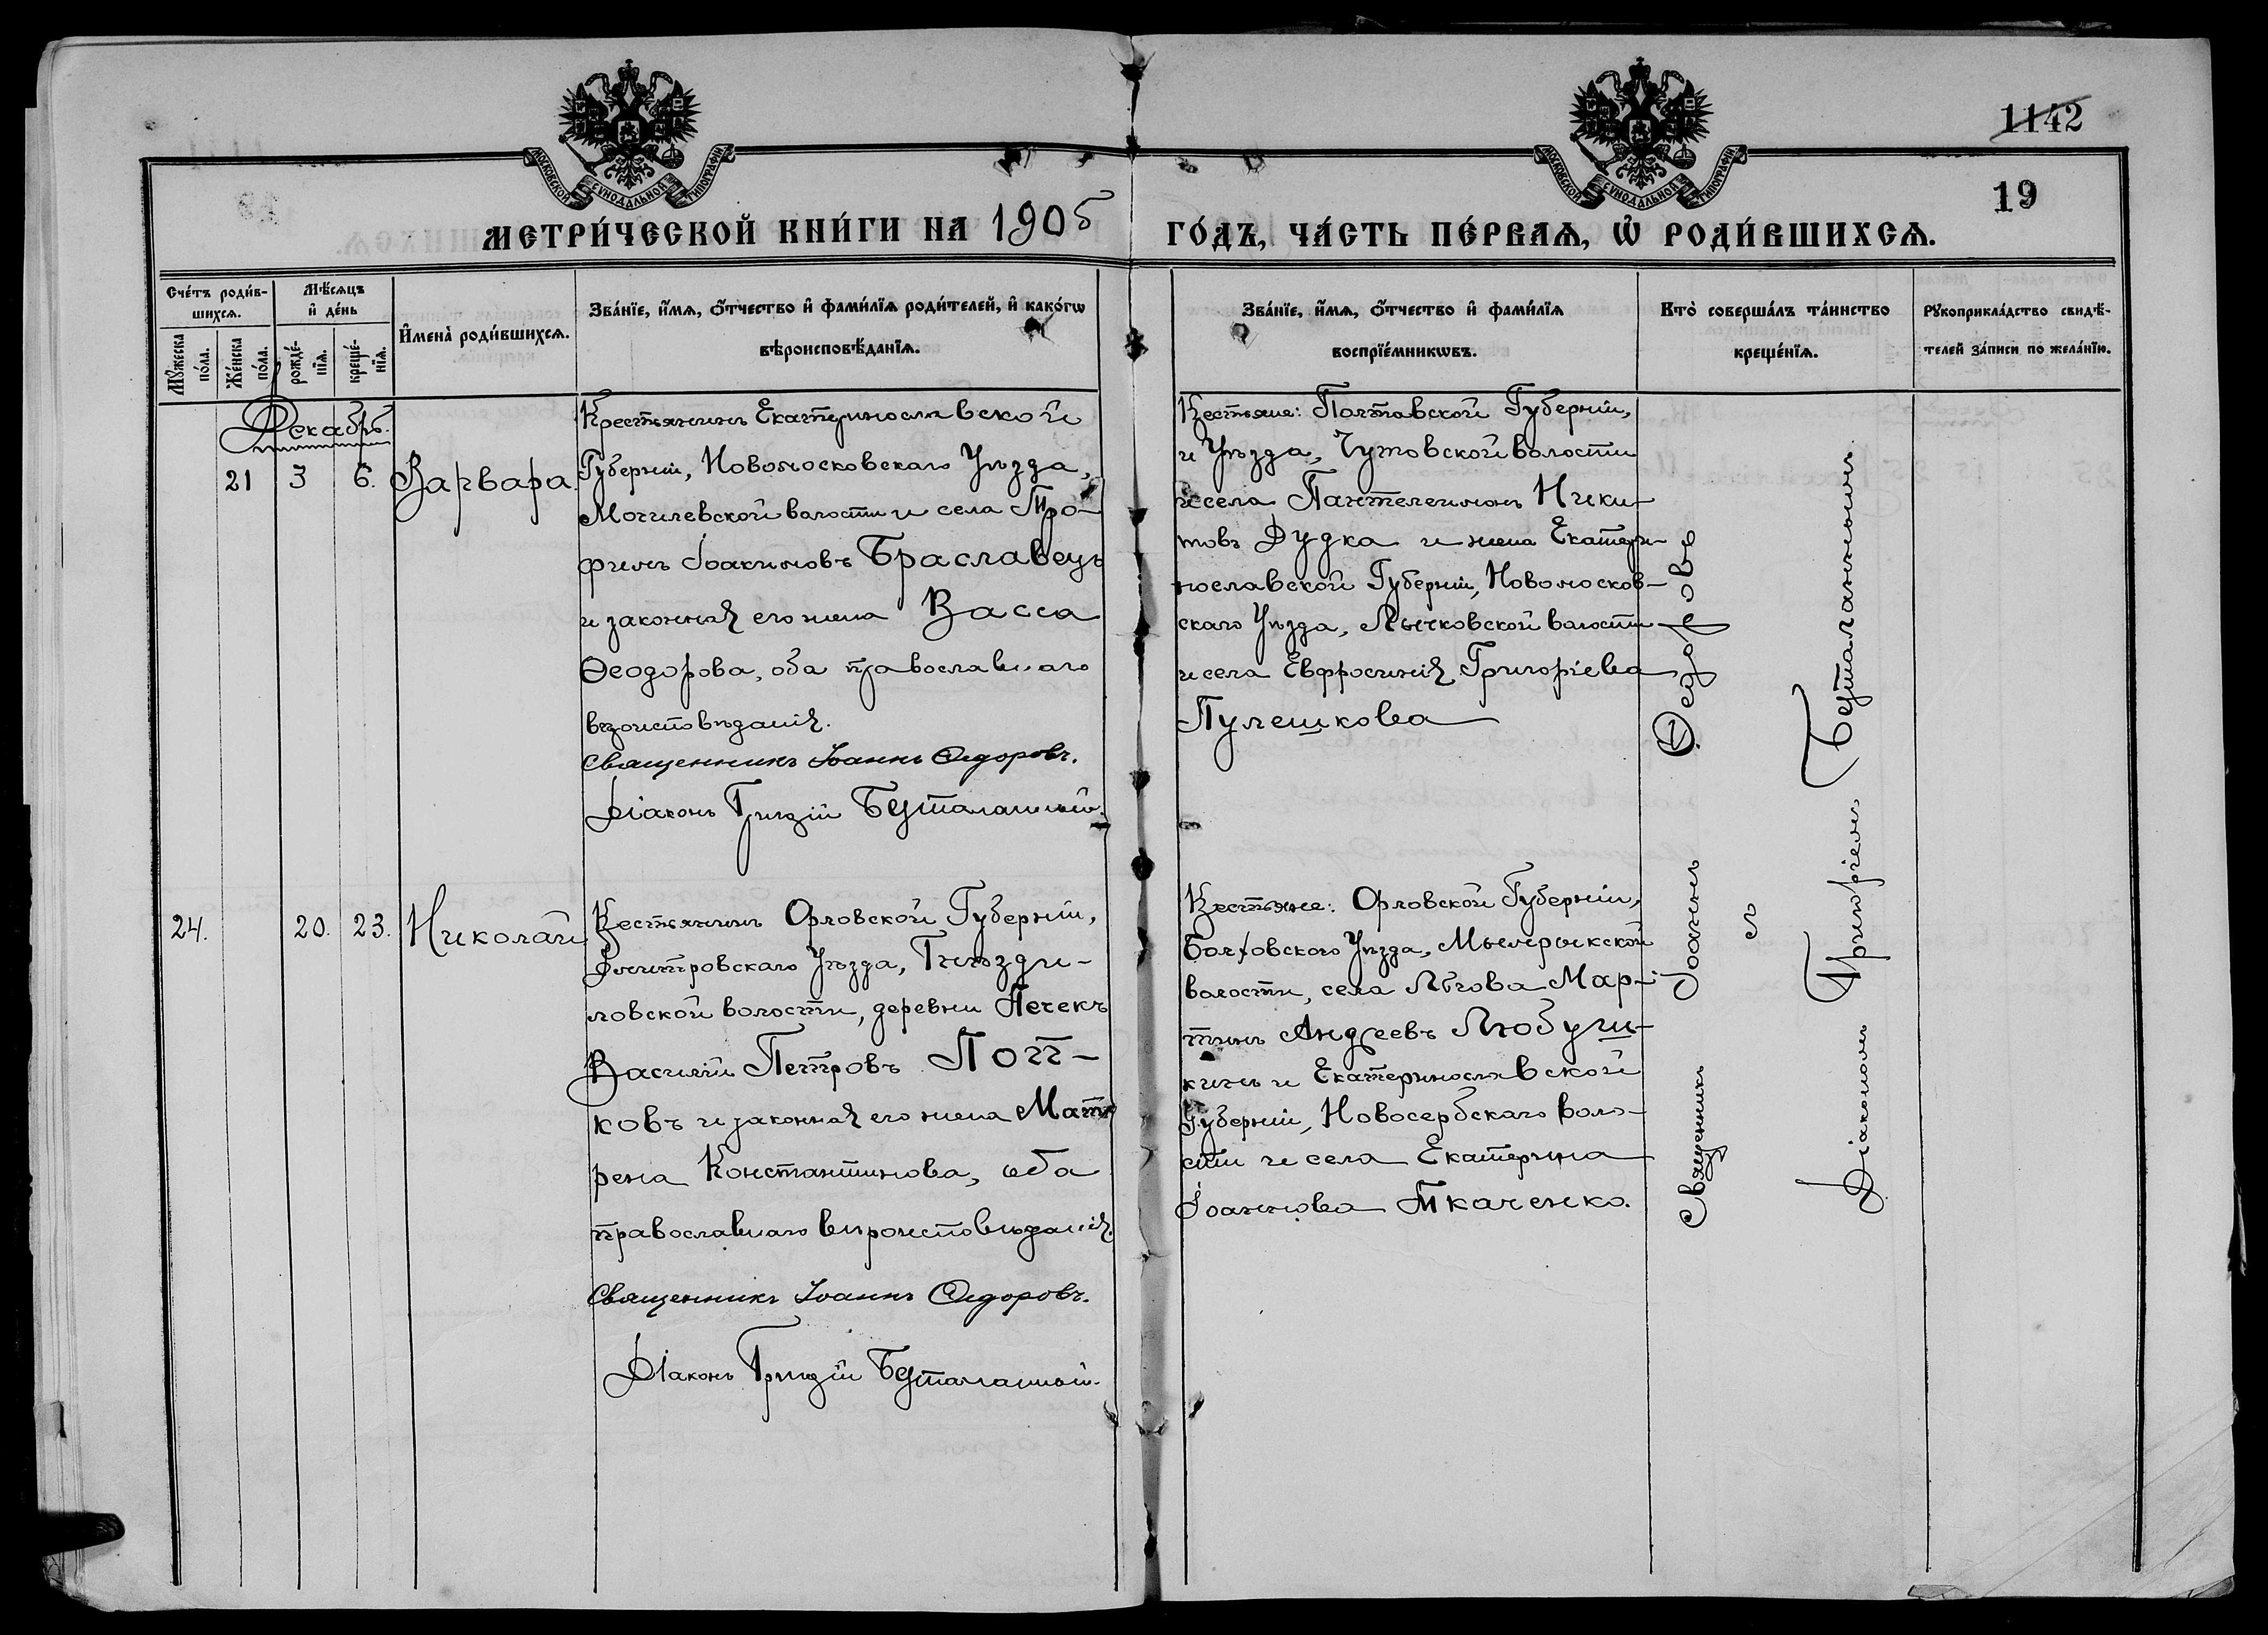 1142
19
МОСКОВСКОЙ СѴНОДАЛЬНОЙ ТИПОГРАФІИ
МОСКОВСКОЙ СѴНОДАЛЬНОЙ ТИПОГРАФІИ
МЕТРИ́ЧЕСКОЙ КНИ́ГИ НА 1905
ГО́ДЪ, ЧА́СТЬ ПЕ́РВАѦ, Ѽ РОДИ́ВШИХСѦ.
Сче́тъ роди́в-
шихсѧ.
Мꙋ́жеска по́ла.
Же́нска по́ла.
Мѣ́сѧцъ
и҆ де́нь
рожде́-
нїѧ.
креще́-
нїѧ.
И҆мена̀ роди́вшихсѧ.
Зва́нїе, и҆́мѧ, ѻ҆́тчество и҆ фами́лїѧ роди́телей, и҆ како́гѡ
вѣроисповѣ́данїѧ.
Зва́нїе, и҆́мѧ, ѻ҆́тчество и҆ фами́лїѧ
воспрїе́мникѡвъ.
Кто̀ соверша́лъ та́инство
креще́нїѧ.
Рꙋкоприкла́дство свидѣ́-
телей за́писи по жела́нїю.
Декабрь.
21 3 6. Варвара.
Крестьянинъ Екатеринославской
Губерніи, Новомосковскаго Уѣзда,
Могилевской волости и села Тро-
фимъ Іоакимовъ Браславецъ
и законная его жена Васса
Ѳеодорова, оба православнаго
вѣроисповѣданія.
Священникъ Іоаннъ Ѳедоровъ.
Діаконъ Григорій Безталанный.
Крестьяне: Полтавской Губерніи,
и Уѣзда, Чутовской волости
и села Пантелеимонъ Ники-
товъ Дудка и жена Екатери-
нославской Губерніи, Новомосков-
скаго Уѣзда, Лычковской волости
и села Евфросинія Григоріева
Пулешкова
24. 20. 23. Николай
Крестьянинъ Орловской Губерніи,
Дмитровскаго Уѣзда, Гнѣзди-
ловской волости, деревни
Василій Петровъ Поп-
ковъ и законная его жена Мат-
рена Константинова, оба
православнаго вѣроисповѣданія.
Священникъ Іоаннъ Ѳедоровъ.
Діаконъ Григорій Безталанный.
Крестьяне: Орловской Губерніи,
Болховскаго Уѣзда,
волости, села Льгова Мар-
тинъ Андреевъ Любуш-
кинъ и Екатеринославской
Губерніи, Новосербскаго воло-
сти и села Екатерина
Іоаннова Ткаченко.
Священникъ Іоаннъ Ѳедоровъ
съ
Діакономъ Григоріемъ Безталаннымъ